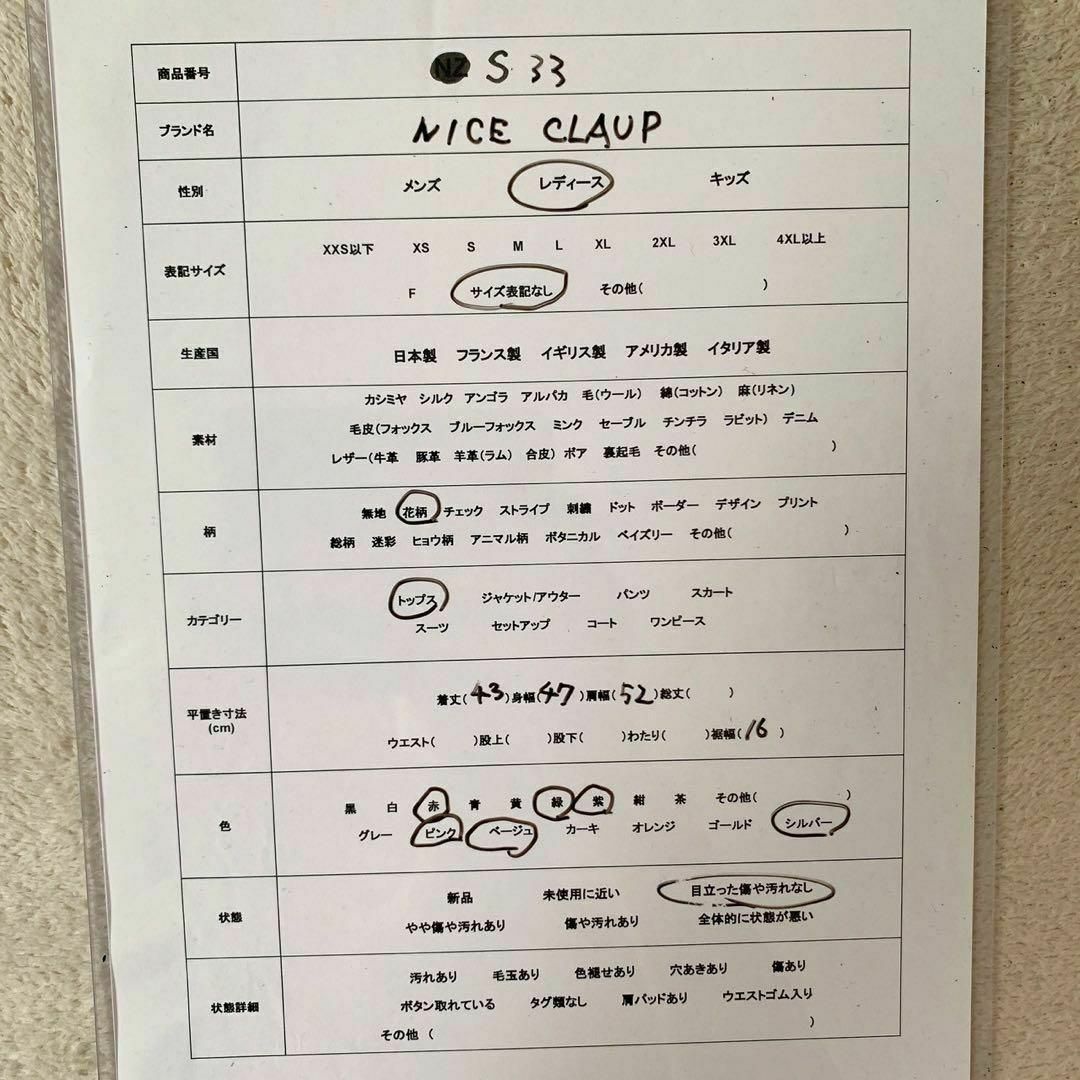 商品番号 NZ S 33
ブランド名 NICE CLAUP
性別 メンズ レディース キッズ
XXS以下 XS S M L XL 2XL 3XL 4XL以上
表記サイズ
F サイズ表記なし その他( )
生産国 日本製 フランス製 イギリス製 アメリカ製 イタリア製
カシミヤ シルク アンゴラ アルパカ 毛(ウール) 綿(コットン) 麻(リネン)
素材 毛皮(フォックス ブルーフォックス ミンク セーブル チンチラ ラビット) デニム
レザー(牛革 豚革 羊革(ラム) 合皮) ボア 裏起毛 その他( )
無地 花柄 チェック ストライプ 刺繍 ドット ボーダー デザイン プリント
柄
総柄 迷彩 ヒョウ柄 アニマル柄 ボタニカル ペイズリー その他( )
トップス ジャケット/アウター パンツ スカート
カテゴリー
スーツ セットアップ コート ワンピース
着丈(43)身幅(47)肩幅(52)総丈( )
平置き寸法
(cm)
ウエスト( )股上( )股下( )わたり( )裾幅(16 )
黒 白 赤 青 黄 緑 紫 紺 茶 その他( )
色
グレー ピンク ベージュ カーキ オレンジ ゴールド シルバー
新品 未使用に近い 目立った傷や汚れなし
状態
やや傷や汚れあり 傷や汚れあり 全体的に状態が悪い
汚れあり 毛玉あり 色褪せあり 穴あきあり 傷あり
状態詳細 ボタン取れている タグ類なし 肩パッドあり ウエストゴム入り
その他 ( )